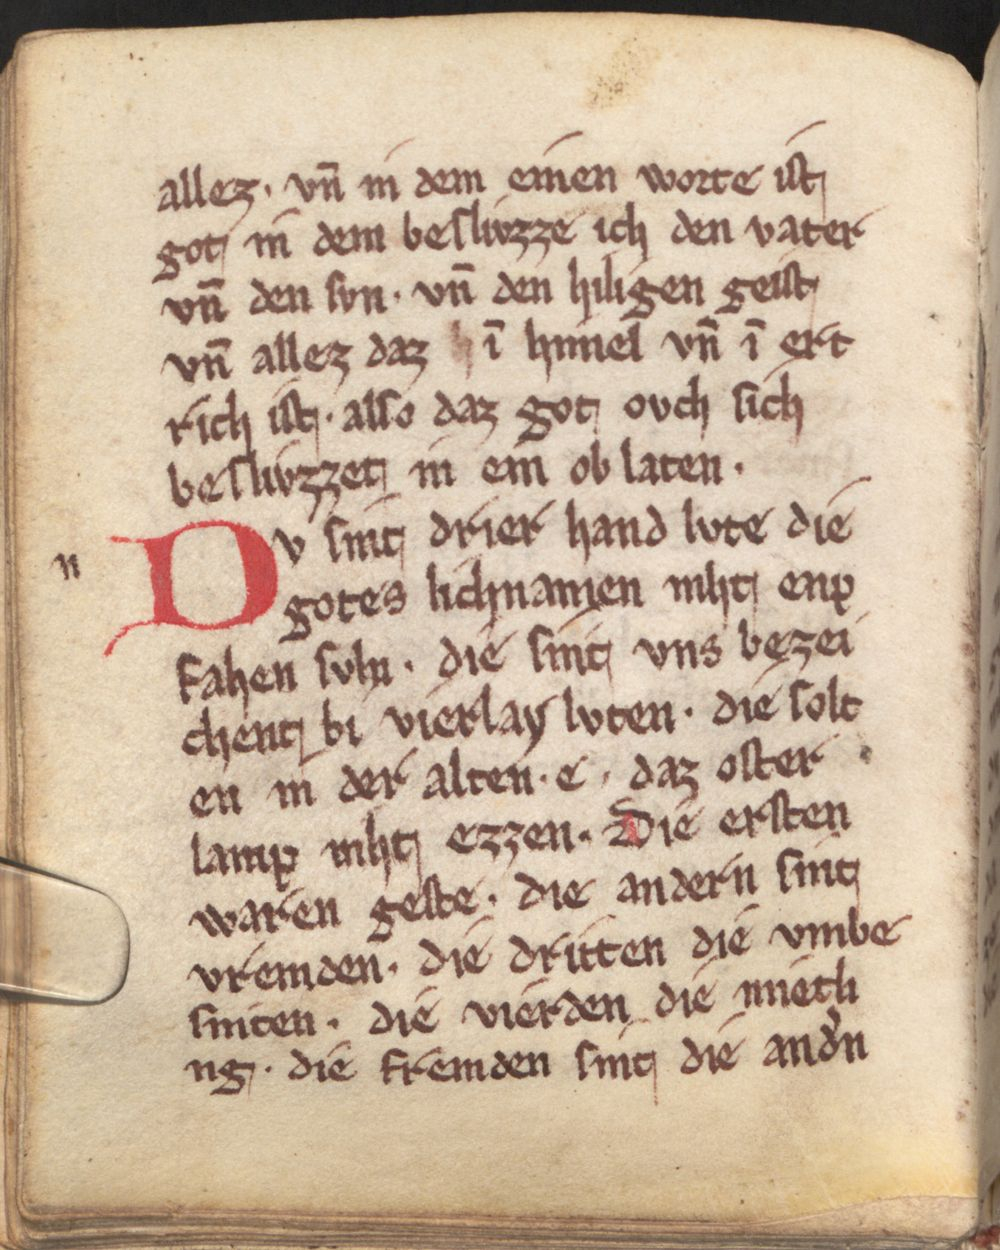 allez · vn̄ in dem einen worte ist
got in dem beslivzze ich den vater
vn̄ den svn · vn̄ den hiligen geist
vn̄ allez daz ī himel vn̄ ī ert
rich ist · also daz got ovch sich
beslivzzet in ein ob laten ·
n
Dv sint drier hand lvte die
gotes lichnamen niht enp
fahen svln · die sint vns bezei
chent bi vierlay lvten · die solt
en in der alten · e · daz oster
lamp niht ezzen · Die ersten
waren geste · die andern sint
vremden · die dritten die vmbe
sniten · die vierden die mieth
ng · die fremden sint die and̓n